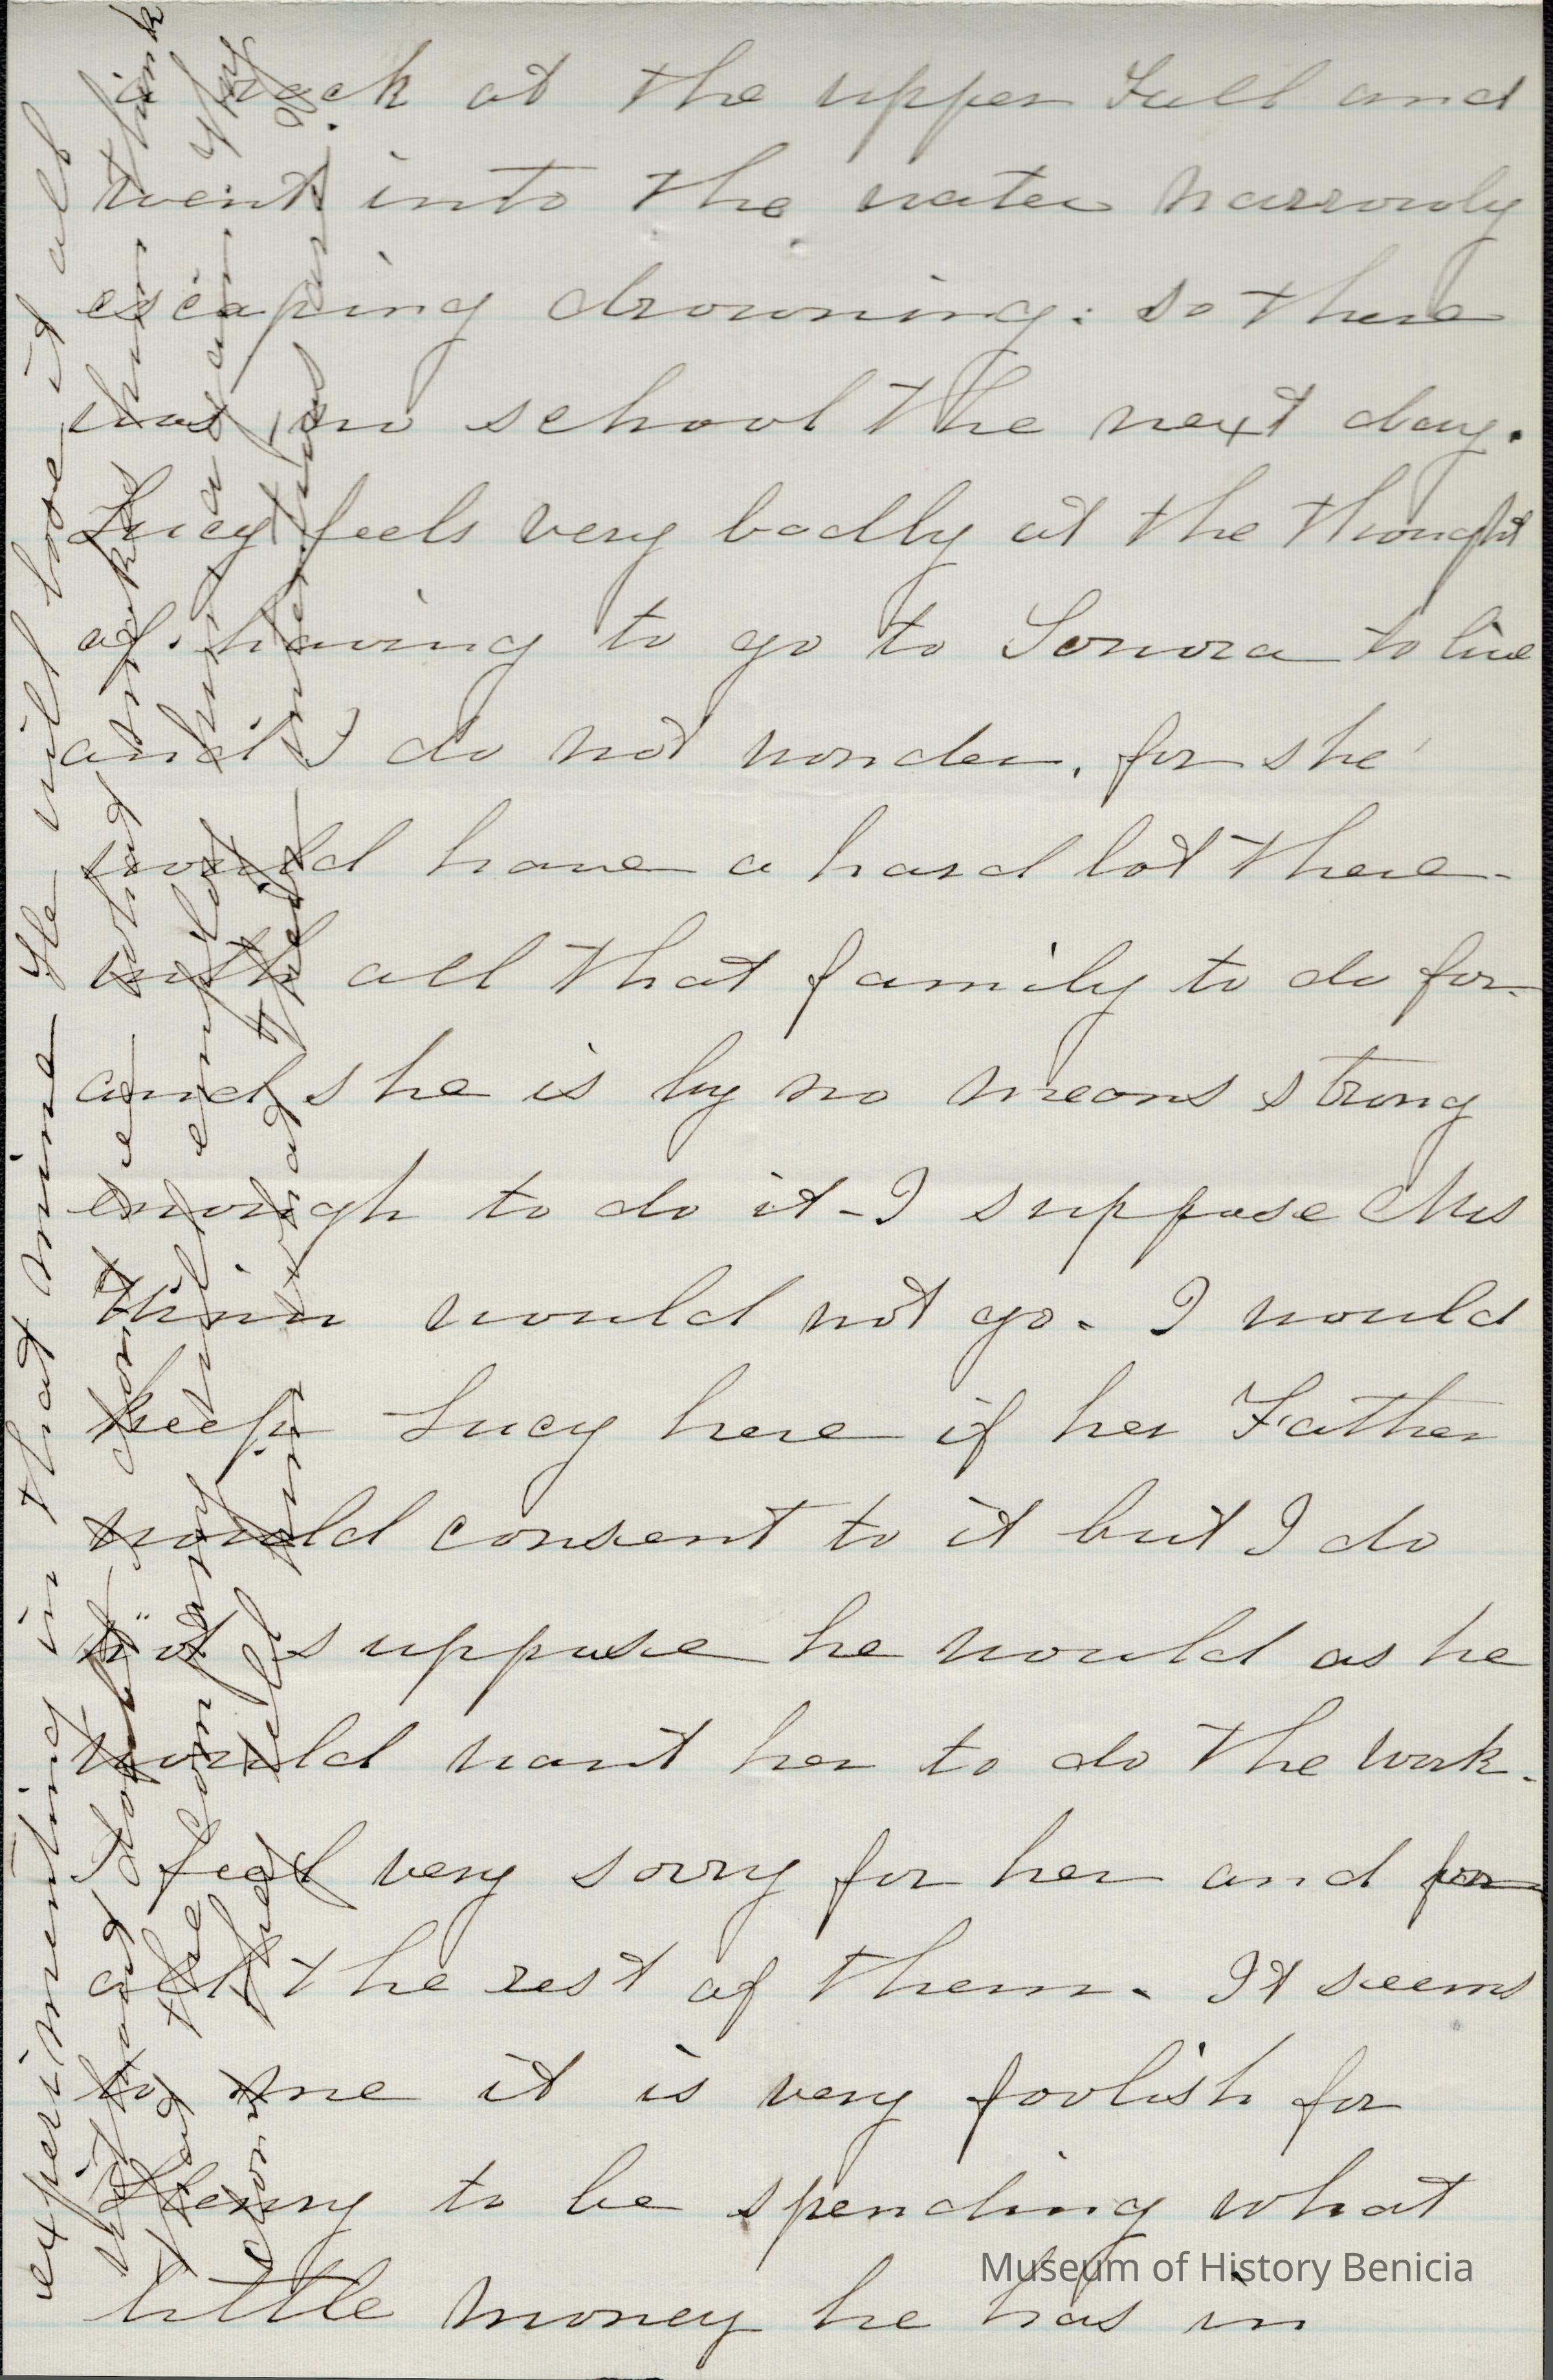 a rock at the upper Fall and
went into the water narrowly
escaping drowning: so there
was no school the next day.
Lucy feels very badly at the thought
of having to go to Sonora to live
and I do not wonder, for she
would have a hard lot there-
with all that family to do for-
and she is by no means strong
enough to do it - I suppose Mrs
would not go. I would
keep Lucy here if her Father
would consent to it but I do
not suppose he would as he
would want her to do the work.
I feel very sorry for her and for
all the rest of them. It seems
to me it is very foolish for
Henry to be spending what
little money he has in
experimenting in that mine He will lose it all
without doubt. I don't see what makes him think
that the company will employ him again They
don't feel find what they are.
Museum of History Benicia